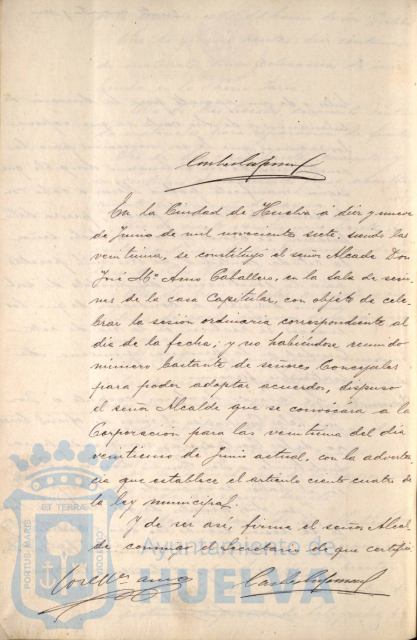 En la Ciudad de Huelva á diez y nueve
de Junio de mil novecientos siete, siendo las
veintiuna, se constituyó el señor Alcalde Don
José Mª Amo Caballero, en la Sala de sesio-
nes de la casa Capitular, con objeto de cele-
brar la sesión ordinaria correspondiente al
día de la fecha; y no habiéndose reunido
número bastante de señores Concejales
para poder adoptar acuerdos, dispuso
el señor Alcalde que se convocára a la
Corporación para las veintiuna del día
veintiuno de Junio actual, con la adverten-
cia que establece el artículo ciento cuatro de
la ley municipal.
Y de ser así, firma el señor Alcal-
de conmigo el Secretario de que certifico.
José Mª Amo
Ayuntamiento de
HUELVA
PORTUS MARIS
ET TERRAE
CUSTODIO